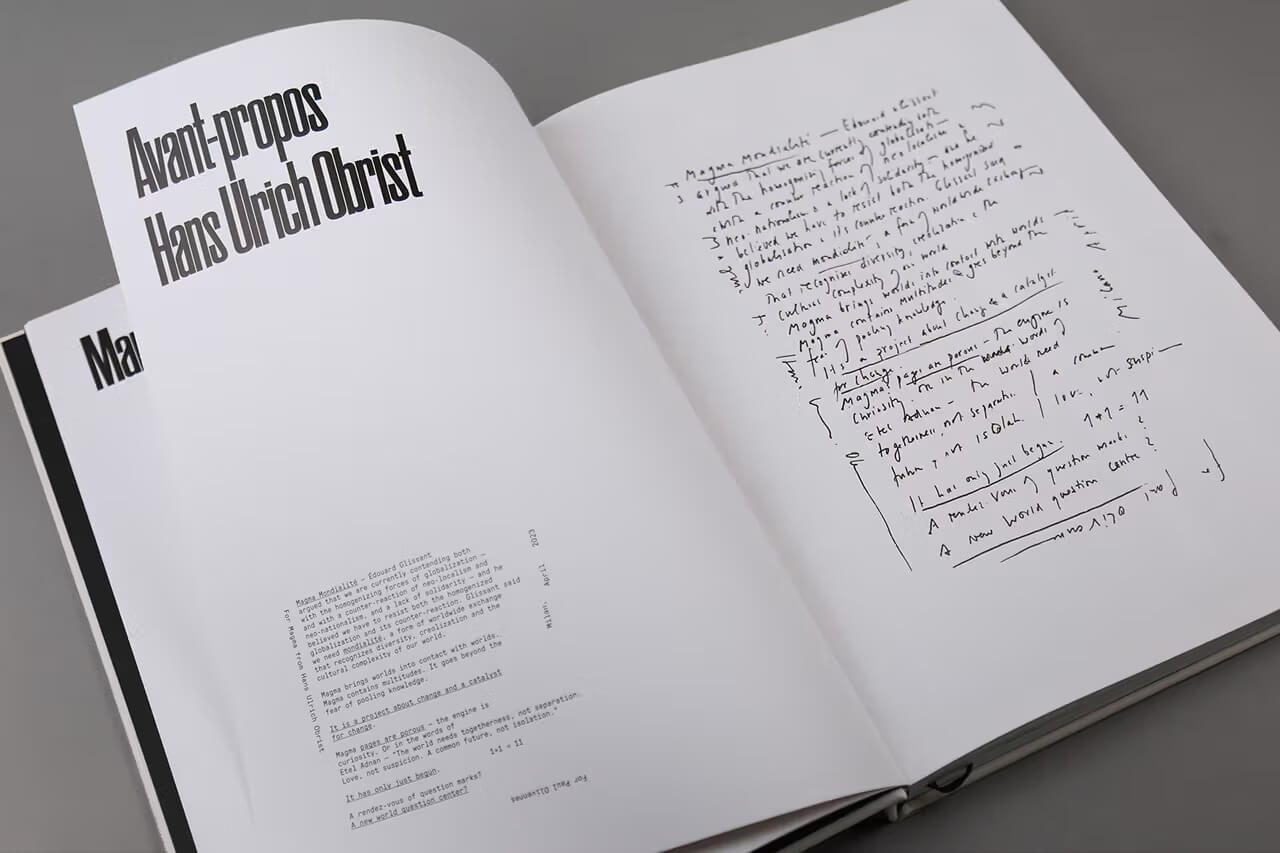 Avant-propos
Hans Ulrich Obrist
Ma
Magma Mondialité – Édouard Glissant
argued that we are currently contending both
with the homogenizing forces of globalization –
and with a counter-reaction of neo-localism and
neo-nationalism, and a lack of solidarity – and he
believed we have to resist both the homogenized
globalization and its counter-reaction. Glissant said
we need mondialité, a form of worldwide exchange
that recognizes diversity, creolization and the
cultural complexity of our world.
Magma brings worlds into contact with worlds.
Magma contains multitudes. It goes beyond the
fear of pooling knowledge.
It is a project about change and a catalyst
for change.
Magma pages are porous – the engine is
curiosity. Or in the words of
Etel Adnan – "The world needs togetherness, not separation.
Love, not suspicion. A common future, not isolation."
1+1 = 11
It has only just begun.
A rendez-vous of question marks?
A new world question center?
For Magma from Hans Ulrich Obrist
Milan, April 2023
For Paul Olivennes
Magma Mondialité — Edouard Glissant
argued that we are currently contending both
with the homogenising forces of globalisati—
& with a counter reaction of neo localism &
neo-nationalism & a lack of solidarity — and he
believed we have to resist both the homogenized
globalisation & its counter reaction. Glissant said
we need mondialité, a form of worldwide exchange
That recognizes diversity, creolization & the
cultural complexity of our world
Magma brings worlds into contact with worlds
Magma contains multitudes & goes beyond the
fear of pooling knowledge.
It is a project about change & a catalyst
for change.
Magma pages are porous — the engine is
Curiosity. Or in the words of
Etel Adnan — The world need
togetherness, not separation
love, not suspi—
a common
future, not isolati.
1+1 = 11
It has only just begun.
A rendez-vous of question marks ?
A new world question centre ?
for Paul Olivennes
Milan
April